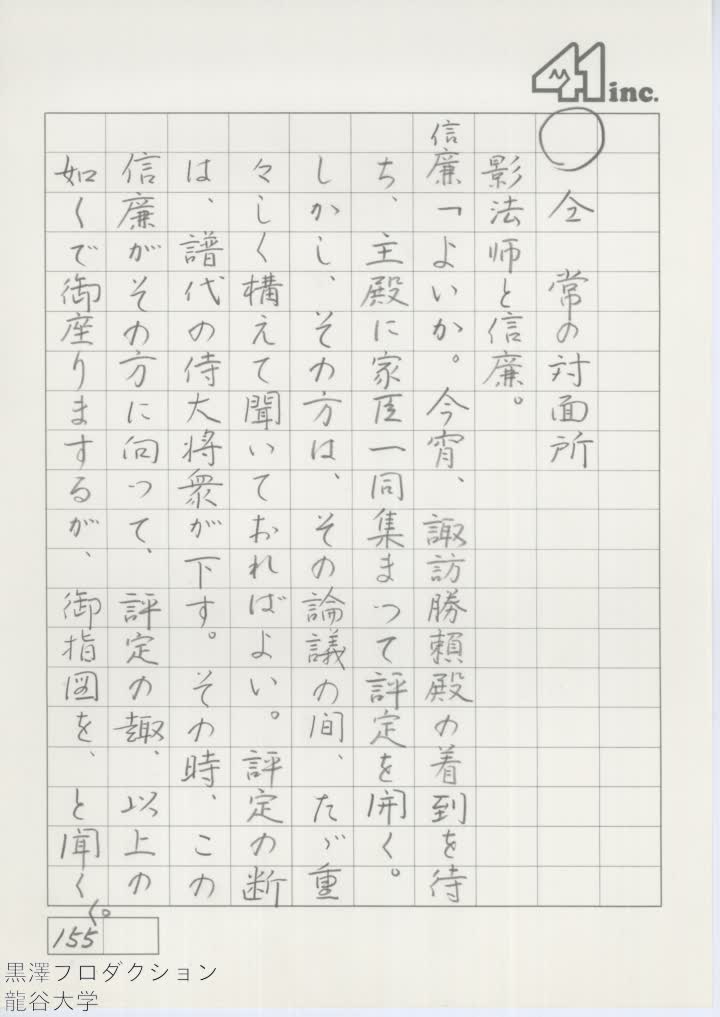 41 inc.
○ 仝　常の対面所
影法師と信廉。
信廉「よいか。今宵、諏訪勝頼殿の着到を待
ち、主殿に家臣一同集まって評定を開く。
しかし、その方は、その論議の間、たゞ重
々しく構えて聞いておればよい。評定の断
は、譜代の侍大将衆が下す。その時、この
信廉がその方に向って、評定の趣、以上の
如くで御座りまするが、御指図を、と聞く
く。
155
黒澤プロダクション
龍谷大学